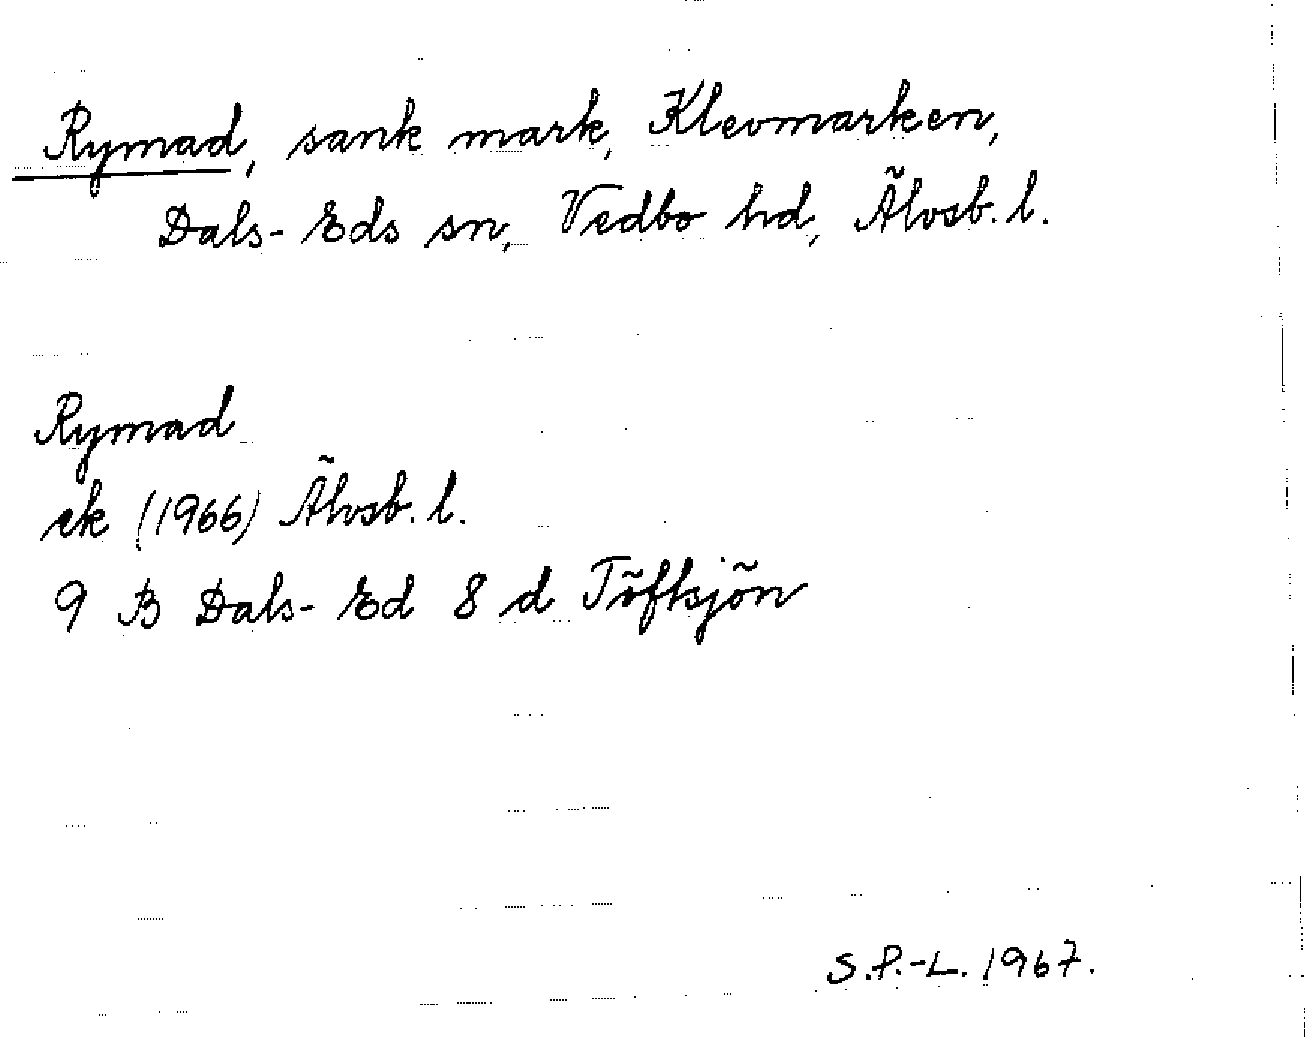 Rymad, sank mark, Klevmarken,
Dals-Eds sn, Vedbo hd, Älvsb. l.
Rymad
ek (1966) Älvsb. l.
9 B Dals-Ed 8 d Töftsjön
S.P.-L. 1967.